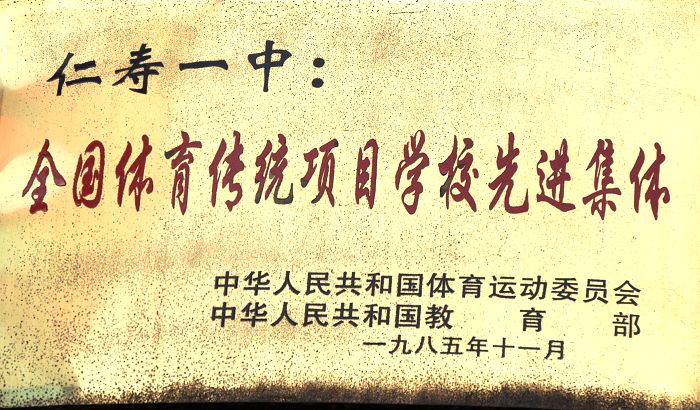 仁寿一中：
全国体育传统项目学校先进集体
中华人民共和国体育运动委员会
中华人民共和国教育部
一九八五年十一月